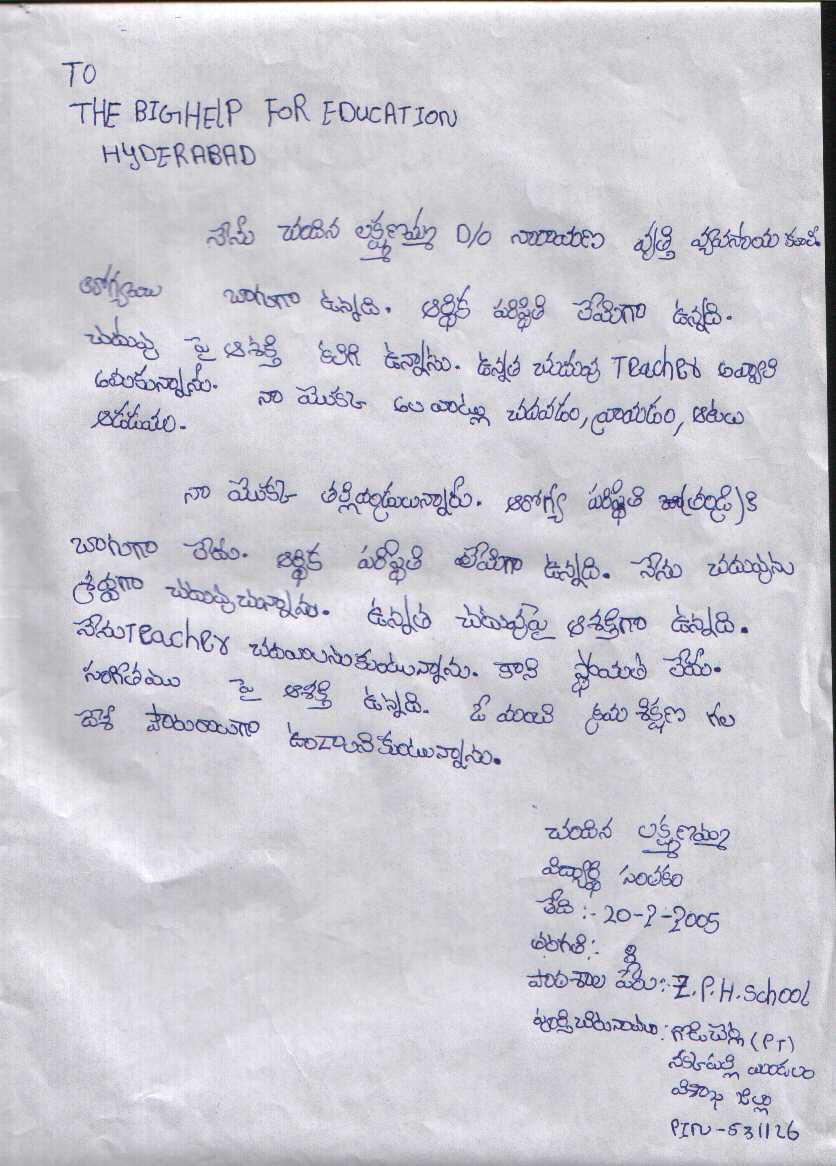 TO
THE BIGHELP FOR EDUCATION
HYDERABAD
నేను చదిన లక్ష్మణమ్మ D/O నారాయణ వృత్తి వ్యవసాయ కూలి.
ఆరోగ్యం బాగుగా ఉన్నది. ఆర్థిక పరిస్థితి లేమిగా ఉన్నది.
చదువు పై ఆశక్తి కలిగి ఉన్నాను. ఉన్నత చదువు Teacher అవ్వాలి
అనుకున్నాను. నా యొక్క అలవాట్లు చదవడం, వ్రాయడం, ఆటలు
ఆడడము.
నా యొక్క తల్లిదండ్రులున్నారు. ఆరోగ్య పరిస్థితి (తండ్రి)కి
బాగుగా లేదు. ఆర్థిక పరిస్థితి లేమిగా ఉన్నది. నేను చదువును
శ్రద్ధగా చదువుచున్నాను. ఉన్నత చదువుపై ఆశక్తిగా ఉన్నది.
నేను Teacher చదవాలనుకుంటున్నాను. కాని స్థోయత లేదు.
సంగీతము పై ఆశక్తి ఉన్నది. ఓ మంచి క్రమశిక్షణ గల
దేశ పౌరురాలుగా ఉండాలనికుంటున్నాను.
లక్ష్మణమ్మ
విద్యార్థి సంతకం
తేది :- 20-2-2005
తరగతి:-
పాఠశాల పేరు:- Z.P.H.School
పూర్తి చిరునామా : గొడిచెర్ల (PT)
నక్కపల్లి మండలం
విశాఖ జిల్లా
PIN - 531126